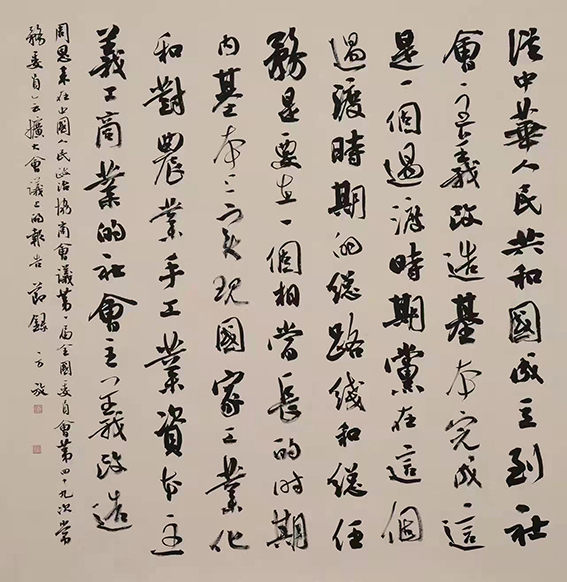 從中華人民共和國成立到社
會主義改造基本完成這
是一個過渡時期黨在這個
過渡時期的總路綫和總任
務是要在一個相當長的時期
内基本上實現國家工業化
和對農業手工業資本主
義工商業的社會主義改造
周恩來在中國人民政治協商會議第一届全國委員會第四十九次常
務委員會擴大會議上的報告 節録 方放